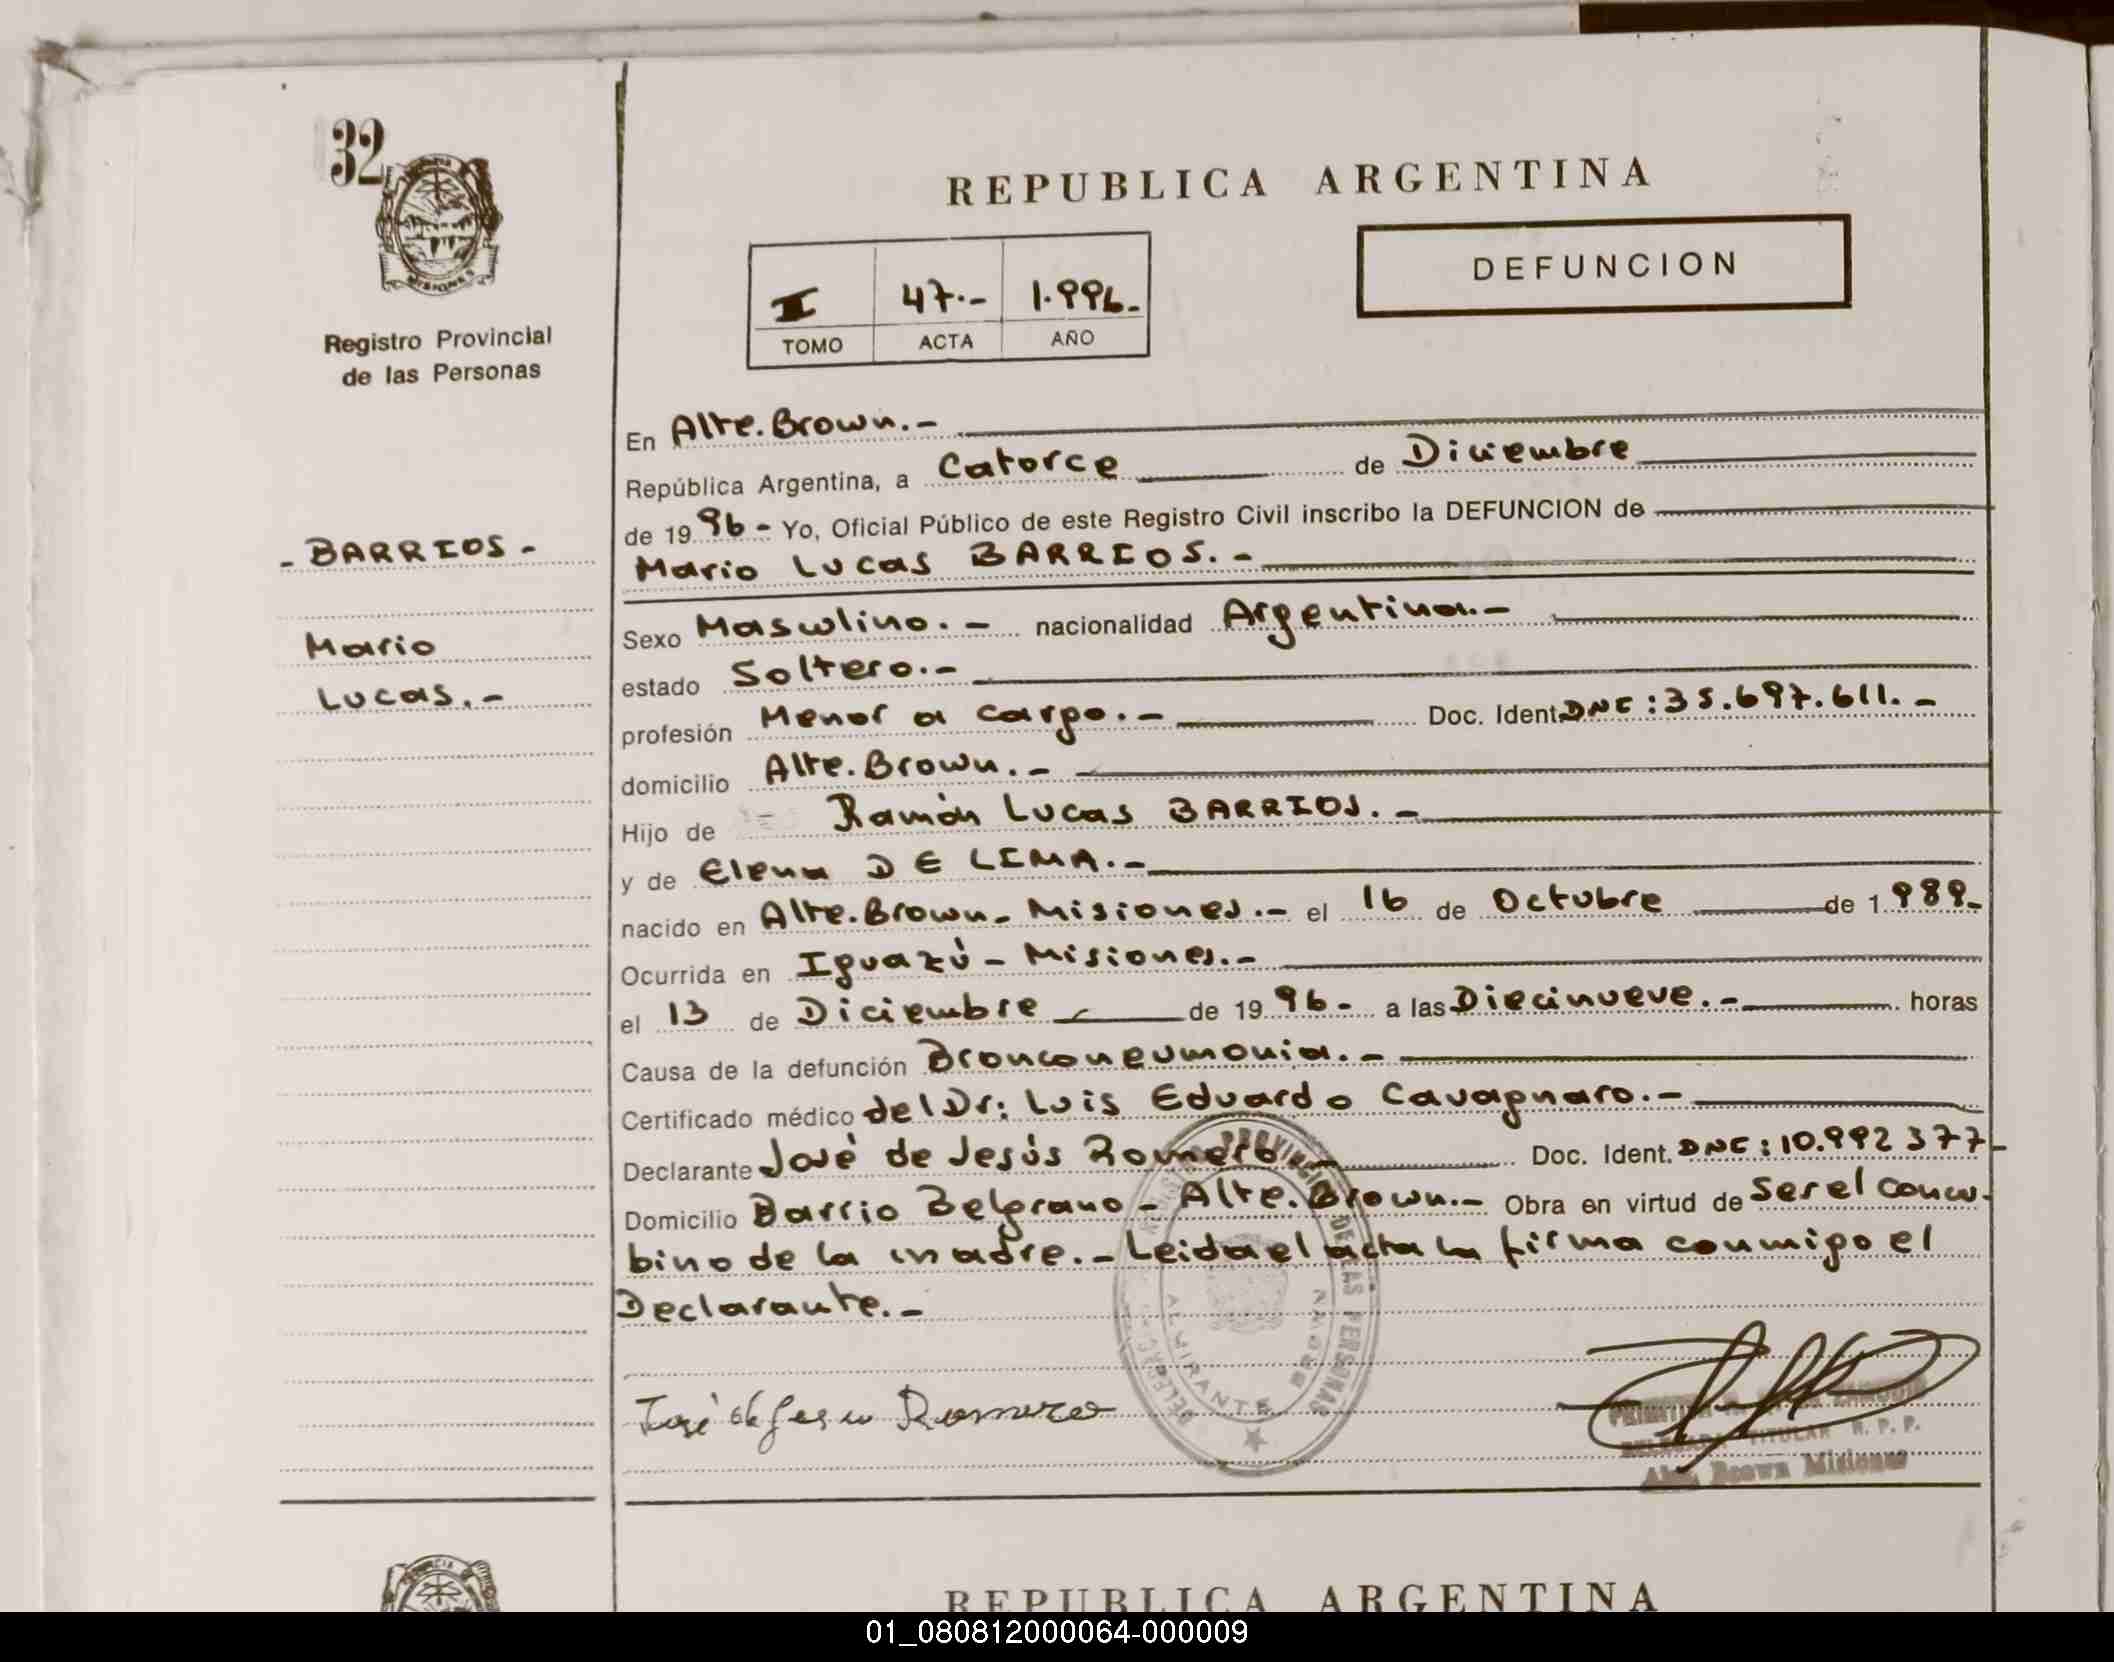 32
MISIONES
Registro Provincial
de las Personas
REPUBLICA ARGENTINA
I 47.- 1.996.-
TOMO ACTA AÑO
DEFUNCION
- BARRIOS -
Mario
Lucas.-
En Alte. Brown.-
República Argentina, a Catorce de Diciembre
de 1996- Yo, Oficial Público de este Registro Civil inscribo la DEFUNCION de
Mario Lucas BARRIOS.-
Sexo Masculino.- nacionalidad Argentina.-
estado Soltero.-
profesión Menor a cargo.- Doc. Ident. DNI: 35.697.611.-
domicilio Alte. Brown.-
Hijo de Ramón Lucas BARRIOS.-
y de Elena DE LIMA.-
nacido en Alte. Brown- Misiones.- el 16 de Octubre de 1.989-
Ocurrida en Iguazú - Misiones.-
el 13 de Diciembre de 1996- a las Diecinueve.- horas
Causa de la defunción Bronconeumonia.-
Certificado médico del Dr: Luis Eduardo Cavagnaro.-
Declarante José de Jesús Romero.- Doc. Ident. DNI: 10.992377-
Domicilio Barrio Belgrano - Alte. Brown.- Obra en virtud de Ser el concu-
bino de la madre.- Leida el acta la firma conmigo el
Declarante.-
PROVINCIAL DE LAS PERSONAS
ALMIRANTE BROWN
José de Jesus Romero
DELEGADA TITULAR R. P. P.
Alte. Brown Misiones
REPUBLICA ARGENTINA
01_080812000064-000009